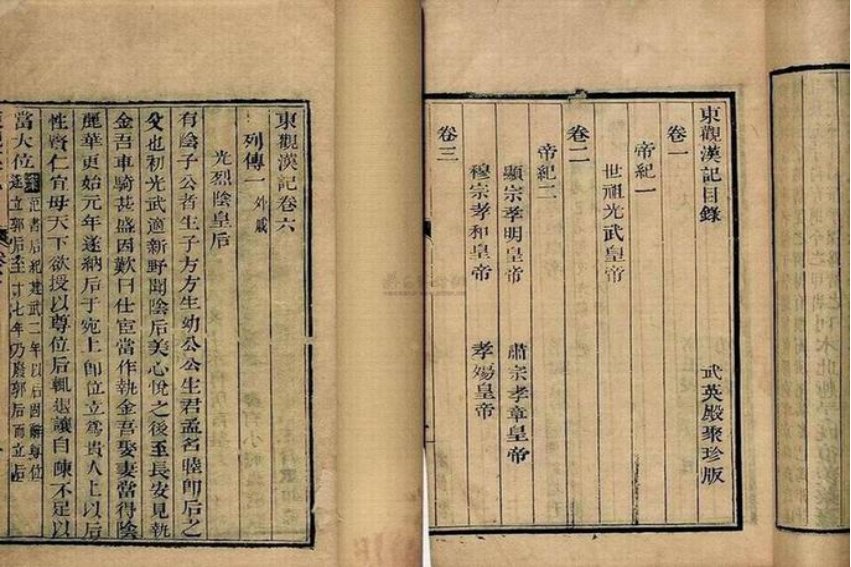 東觀漢記目錄 武英殿聚珍版
卷一
帝紀一
世祖光武皇帝
卷二
帝紀二
顯宗孝明皇帝 肅宗孝章皇帝
卷三
穆宗孝和皇帝 孝殤皇帝
東觀漢記卷六
列傳一 外戚
光烈陰皇后
有陰子公者生子方方生幼公公生君孟名睦卽后之
父也初光武適新野聞陰后美心悅之後至長安見執
金吾車騎甚盛因歎曰仕宦當作執金吾娶妻當得陰
麗華更始元年遂納后于宛上卽位立爲貴人上以后
性賢仁宜母天下欲授以尊位后輒退讓自陳不足以
當大位 案范書后紀建武二年以后固辭尊位
遂立郭后至十七年乃廢郭后而立后